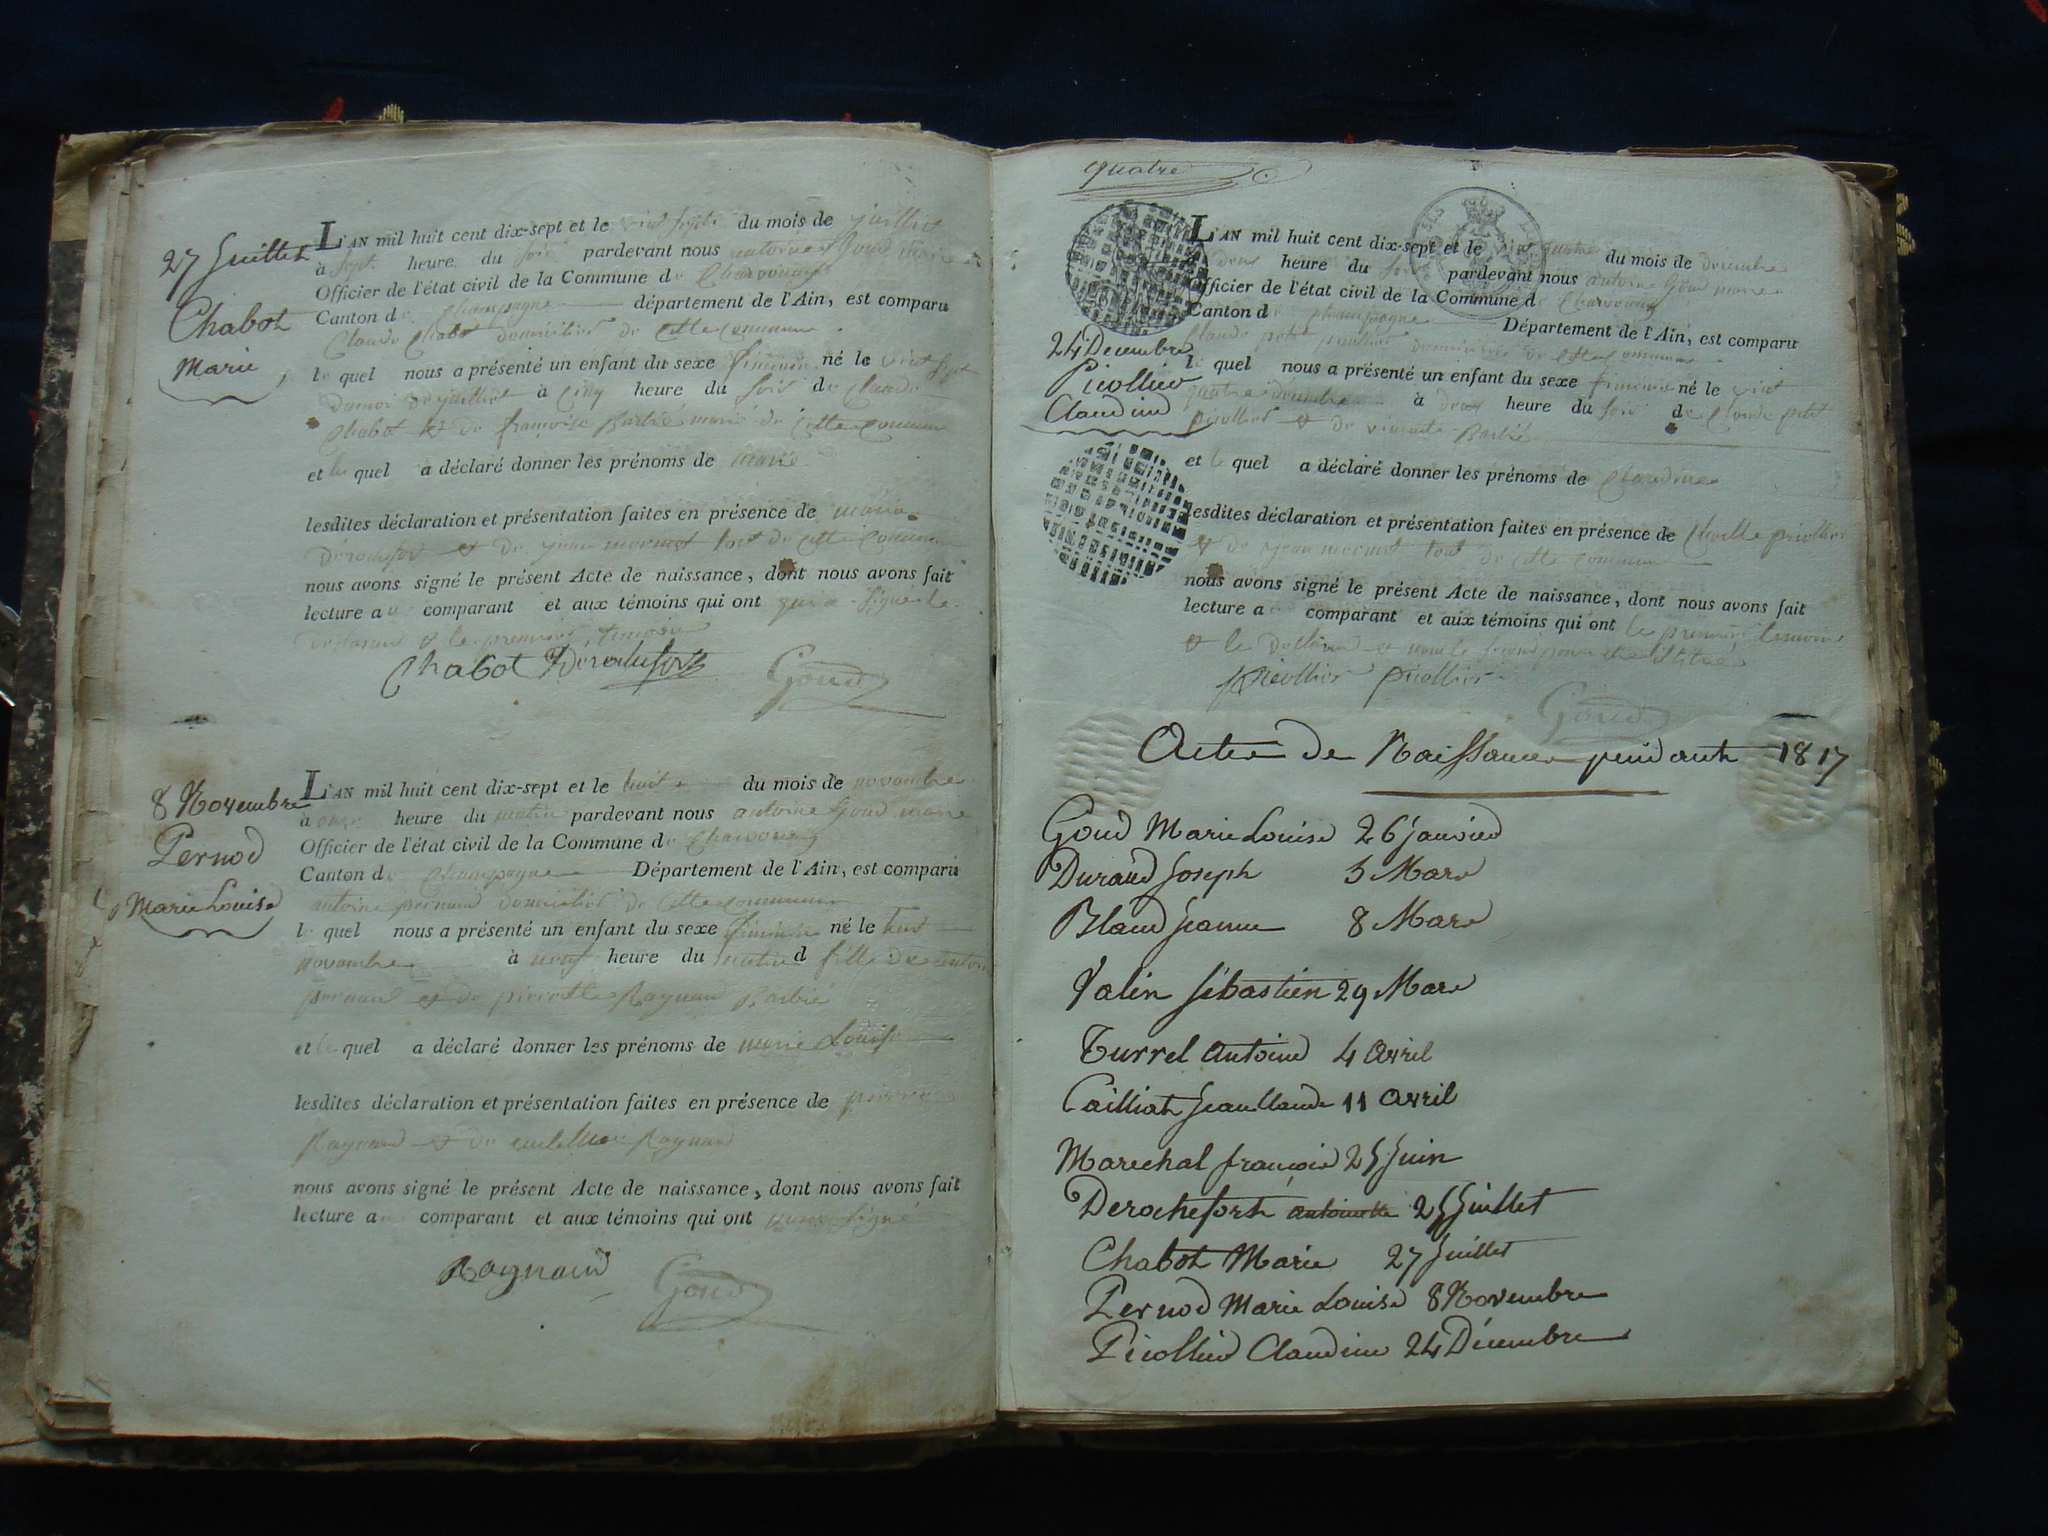 27 Juillet
Chabot
Marie
L'AN mil huit cent dix-sept et le vint sept du mois de juilliet
à sept heure du soir pardevant nous antoine Goud maire
Officier de l'état civil de la Commune de Charvonay
Canton de Champagne département de l'Ain, est comparu
Claude Chabot domicilier de cette commune
le quel nous a présenté un enfant du sexe né le vint sept
du moi de juilliet à cinq heure du soir de Claude
Chabot et de françoise Barbié marié de cette commune
et le quel a déclaré donner les prénoms de marie
lesdites déclaration et présentation faites en présence de
et de jean mermet tout de cette commune
nous avons signé le présent Acte de naissance, dont nous avons fait
lecture au comparant et aux témoins qui ont signé le
et le premier temoin
Chabot Goud
8 Novembre
Pernod
Marie Louise
L'AN mil huit cent dix-sept et le huit du mois de novambre
à onze heure du matin pardevant nous antoine Goud maire
Officier de l'état civil de la Commune de
Canton de Champagne Département de l'Ain, est comparu
antoine domicilier de cette commune
le quel nous a présenté un enfant du sexe né le huit
novambre à heure du matin d fille de
et de Raynaud Barbié
et le quel a déclaré donner les prénoms de marie Louise
lesdites déclaration et présentation faites en présence de pierre
Raynaud et de Raynaud
nous avons signé le présent Acte de naissance, dont nous avons fait
lecture au comparant et aux témoins qui ont signé
Raynaud Goud
quatre
24 Decembre
Picollier
Claudine
L'AN mil huit cent dix-sept et le vint quatre du mois de decembre
à deux heure du soir pardevant nous antoine Goud maire
Officier de l'état civil de la Commune d
Canton d Champagne Département de l'Ain, est comparu
Claude petit picollier domicilier de cette commune
le quel nous a présenté un enfant du sexe né le vint
quatre décembre à deux heure du soir de Claude petit
picollier et de Barbié
et le quel a déclaré donner les prénoms de Claudine
lesdites déclaration et présentation faites en présence de picollier
et de jean mermet tout de cette commune
nous avons signé le présent Acte de naissance, dont nous avons fait
lecture a comparant et aux témoins qui ont le premier temoin
et le
Picollier picollier
Goud
Actes de Naissances pendant 1817
Goud Marie Louise 26 janvier
Durand Joseph 3 Mars
Blanc Jeanne 8 Mars
Valin Sébastien 29 Mars
Turrel Antoine 4 Avril
Cailliat Jean Claude 11 Avril
Marechal françois 25 Juin
Derochefort antoinette 25 Juillet
Chabot Marie 27 Juillet
Pernod Marie Louise 8 Novembre
Picollier Claudine 24 Décembre